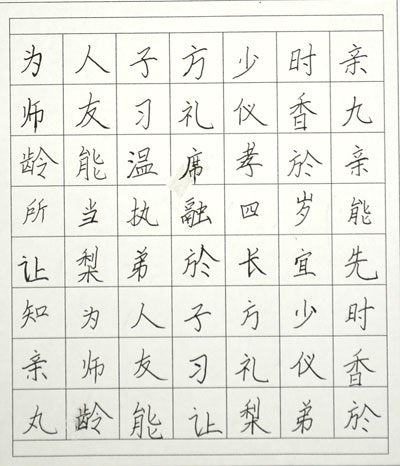 为人子方少时亲
师友习礼仪香九
龄能温席孝於亲
所当执融四岁能
让梨弟於长宜先
知为人子方少时
亲师友习礼仪香
丸龄能让梨弟於